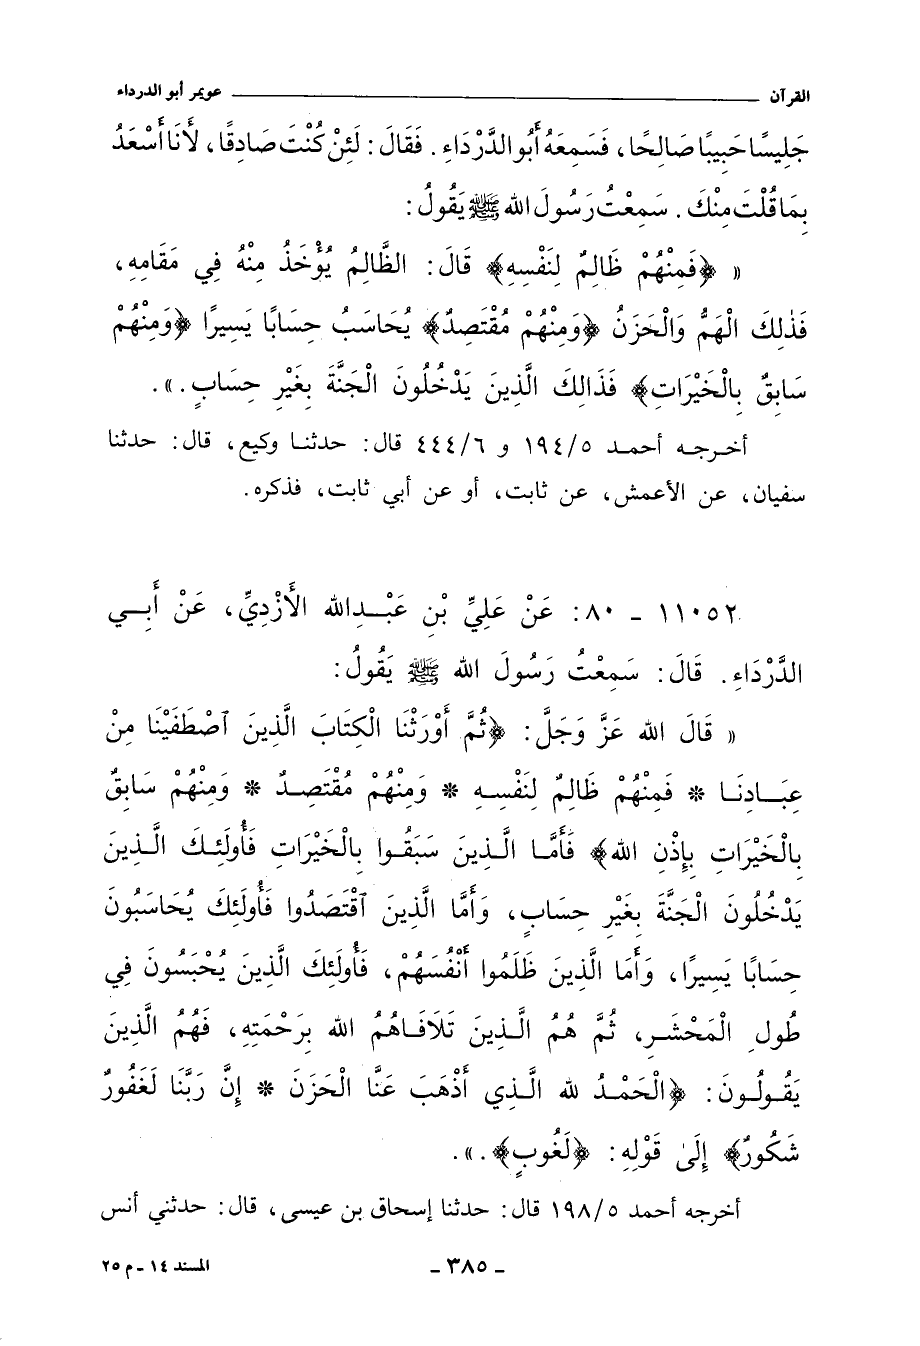 القرآن ــــــــــــ عويمر أبو الدرداء
جَلِيسًا حَبِيبًا صَالِحًا، فَسَمِعَهُ أَبُو الدَّرْدَاءِ. فَقَالَ: لَئِنْ كُنْتَ صَادِقًا، لَأَنَا أَسْعَدُ
بِمَا قُلْتَ مِنْكَ. سَمِعْتُ رَسُولَ الله ﷺ يَقُولُ:
« ﴿فَمِنْهُمْ ظَالِمٌ لِنَفْسِهِ﴾ قَالَ: الظَّالِمُ يُؤْخَذُ مِنْهُ فِي مَقَامِهِ،
فَذٰلِكَ الْهَمُّ وَالْحَزَنُ ﴿وَمِنْهُمْ مُقْتَصِدٌ﴾ يُحَاسَبُ حِسَابًا يَسِيرًا ﴿وَمِنْهُمْ
سَابِقٌ بِالْخَيْرَاتِ﴾ فَذَالِكَ الَّذِينَ يَدْخُلُونَ الْجَنَّةَ بِغَيْرِ حِسَابٍ.».
أخرجه أحمد ١٩٤/٥ و ٤٤٤/٦ قال: حدثنا وكيع، قال: حدثنا
سفيان، عن الأعمش، عن ثابت، أو عن أبي ثابت، فذكره.
١١٠٥٢ ـ ٨٠: عَنْ عَلِيِّ بْنِ عَبْدِالله الأَزْدِيِّ، عَنْ أَبِي
الدَّرْدَاءِ. قَالَ: سَمِعْتُ رَسُولَ الله ﷺ يَقُولُ:
« قَالَ الله عَزَّ وَجَلَّ: ﴿ثُمَّ أَوْرَثْنَا الْكِتَابَ الَّذِينَ ٱصْطَفَيْنَا مِنْ
عِبَادِنَا * فَمِنْهُمْ ظَالِمٌ لِنَفْسِهِ * وَمِنْهُمْ مُقْتَصِدٌ * وَمِنْهُمْ سَابِقٌ
بِالْخَيْرَاتِ بِإِذْنِ الله﴾ فَأَمَّا الَّذِينَ سَبَقُوا بِالْخَيْرَاتِ فَأُولَئِكَ الَّذِينَ
يَدْخُلُونَ الْجَنَّةَ بِغَيْرِ حِسَابٍ، وَأَمَّا الَّذِينَ ٱقْتَصَدُوا فَأُولَئِكَ يُحَاسَبُونَ
حِسَابًا يَسِيرًا، وَأَمَا الَّذِينَ ظَلَمُوا أَنْفُسَهُمْ، فَأُولَئِكَ الَّذِينَ يُحْبَسُونَ فِي
طُولِ الْمَحْشَرِ، ثُمَّ هُمُ الَّذِينَ تَلَافَاهُمُ الله بِرَحْمَتِهِ، فَهُمُ الَّذِينَ
يَقُولُونَ: ﴿الْحَمْدُ لله الَّذِي أَذْهَبَ عَنَّا الْحَزَنَ * إِنَّ رَبَّنَا لَغَفُورٌ
شَكُورٌ﴾ إِلَىٰ قَوْلِهِ: ﴿لَغُوبٍ﴾.».
أخرجه أحمد ١٩٨/٥ قال: حدثنا إسحاق بن عيسى، قال: حدثني أنس
ـ ٣٨٥ ـ المسند ١٤ ـ م ٢٥